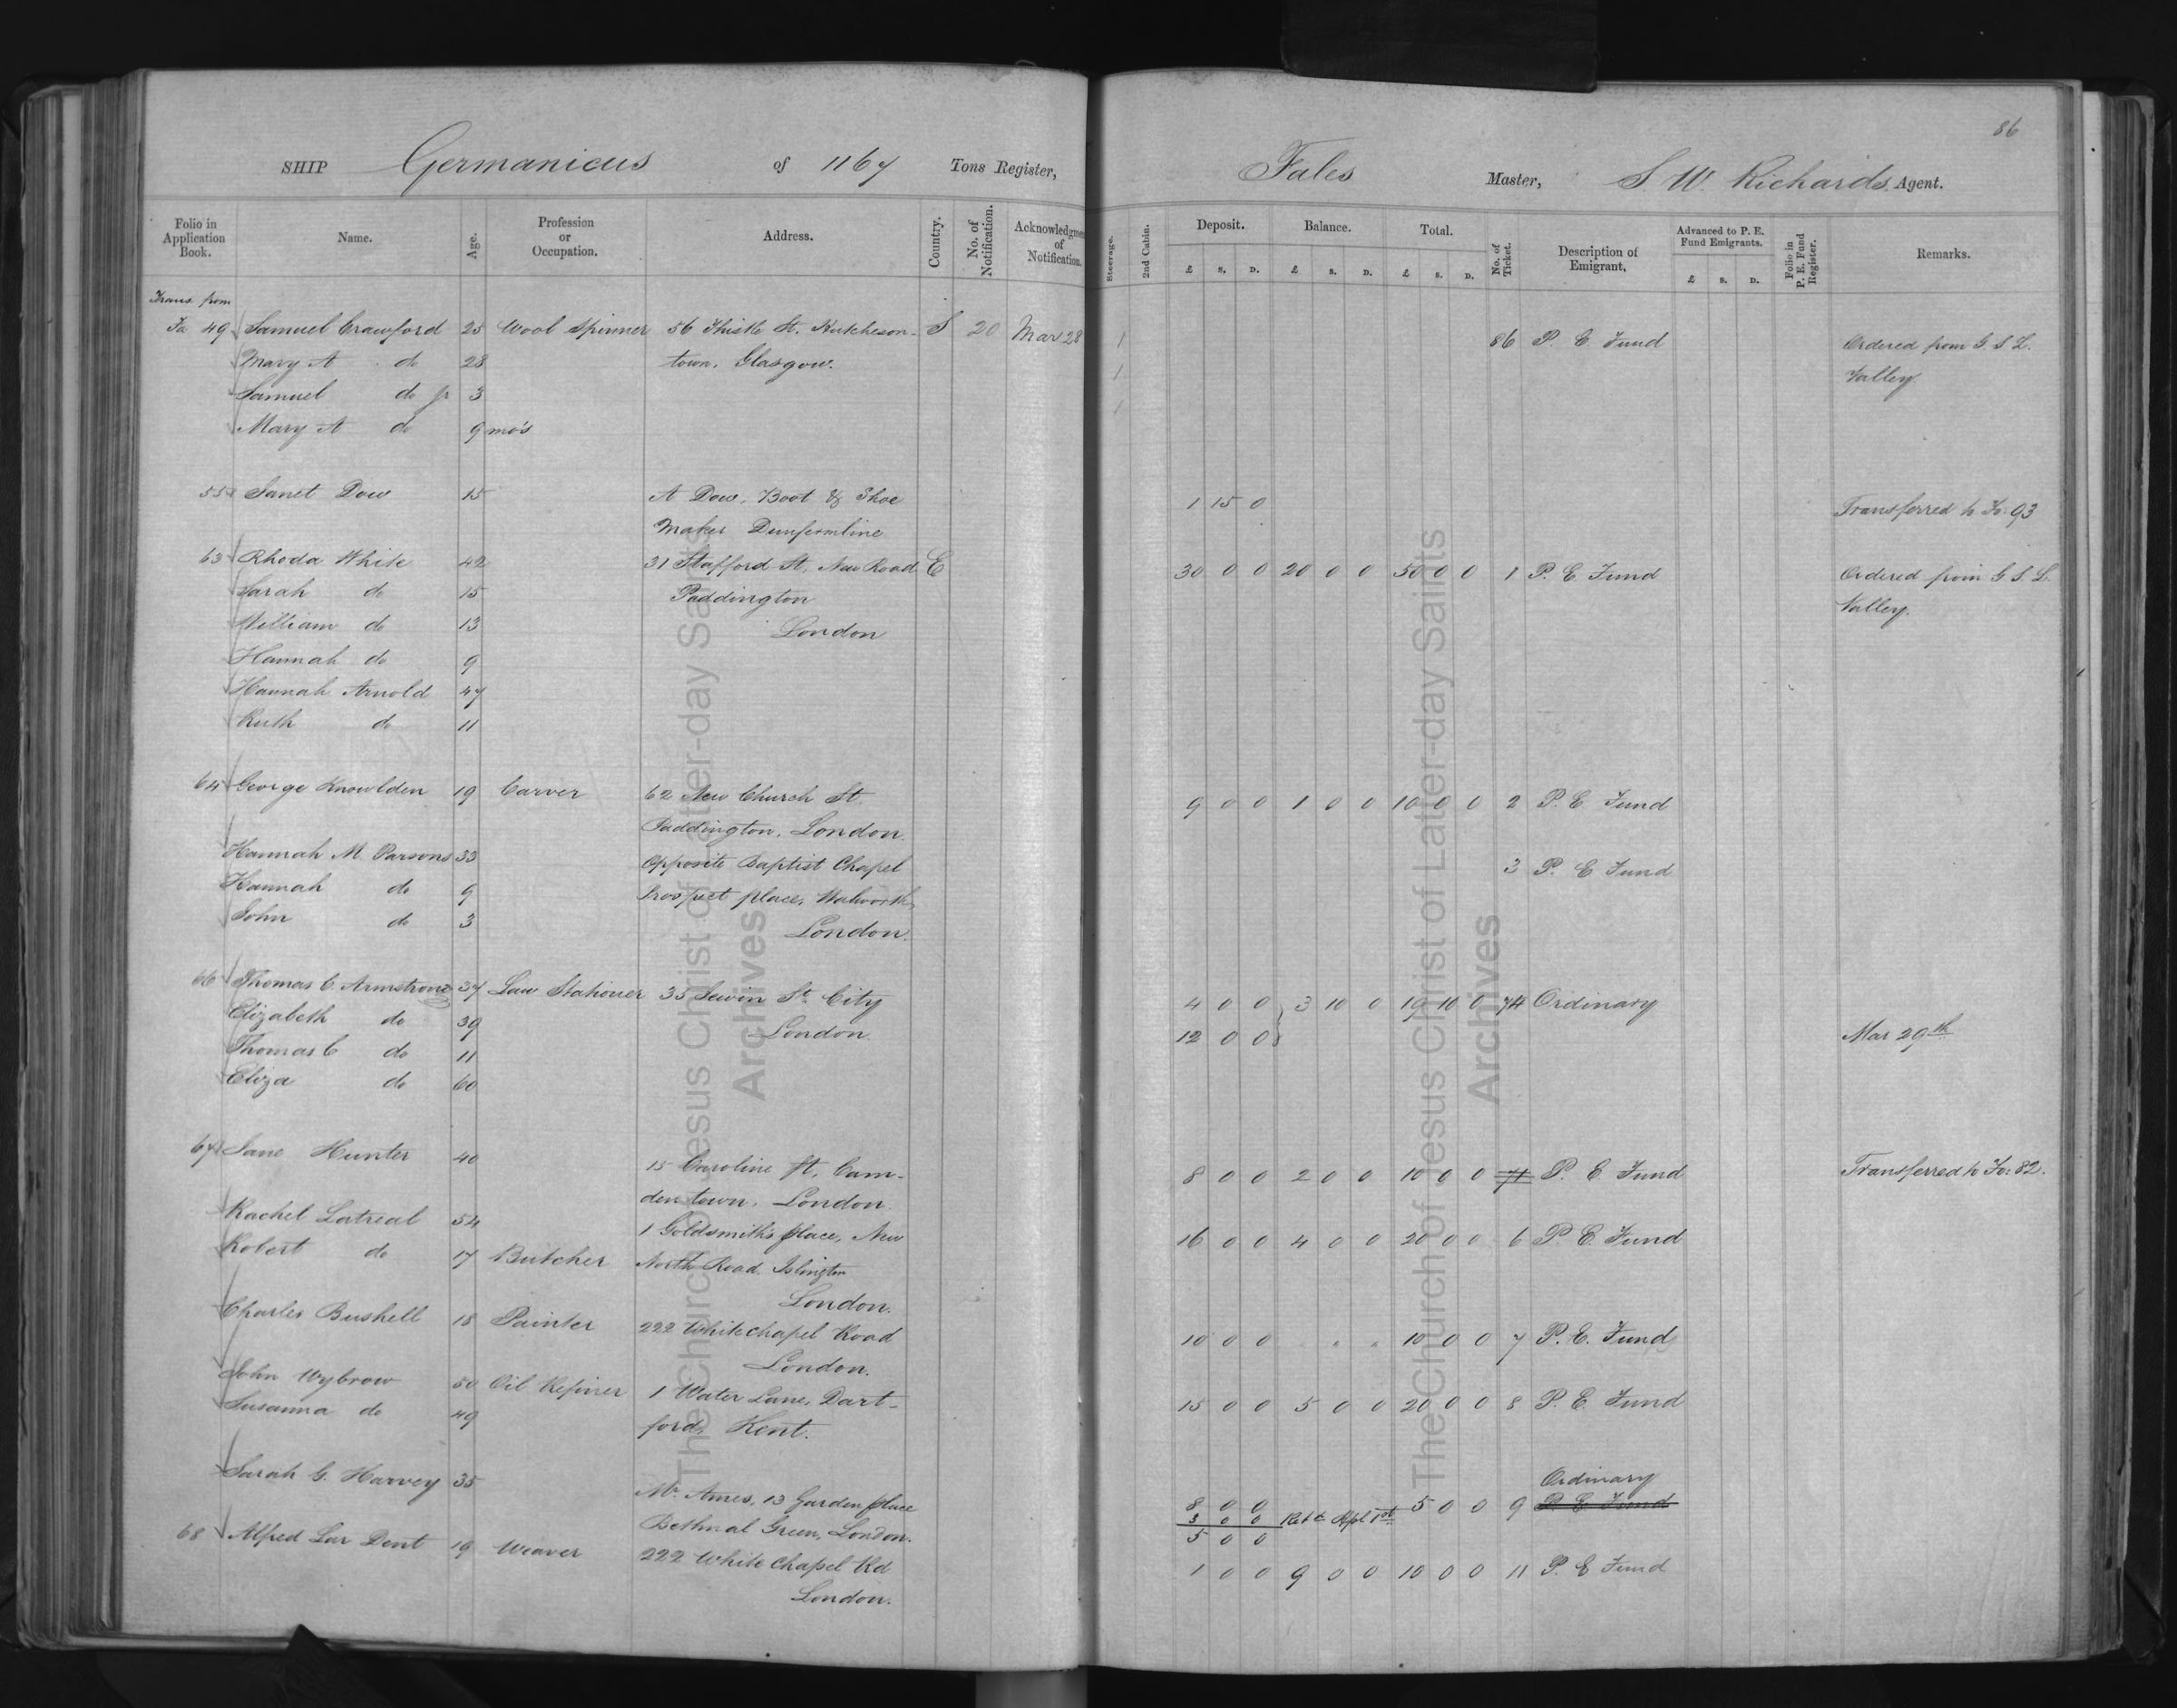 86
SHIP Germanicus of 1167 Tons Register, Fales Master, S W Richards Agent.
Folio in Application Book. Name. Age. Profession or Occupation. Address. Country. No. of Notification. Acknowledgment of Notification. Steerage. 2nd Cabin. Deposit. Balance. Total. No. of Ticket. Description of Emigrant. Advanced to P. E. Fund Emigrants. Folio in P. E. Fund Register. Remarks.
£ s. D. £ s. D. £ s. D. £ s. D.
Trans from
Fo 49 Samuel Crawford 25 Wool Spinner 56 Thistle St. Hutcheson- S 20 Mar 28 1 86 P. E. Fund Ordered from G. S. L.
Mary A do 28 town, Glasgow. 1 Valley.
Samuel do jr 3 1
Mary A do 9 mo's
55 Janet Dow 15 A Dow, Boot & Shoe 1 15 0 Transferred to Fo: 93
Maker Dunfermline
63 Rhoda White 42 31 Stafford St, New Road E 30 0 0 20 0 0 50 0 0 1 P. E. Fund Ordered from G S L.
Sarah do 15 Paddington Valley.
William do 13 London
Hannah do 9
Hannah Arnold 47
Ruth do 11
64 George Knowlden 19 Carver 62 New Church St 9 0 0 1 0 0 10 0 0 2 P. E. Fund
Paddington, London.
Hannah M. Parsons 33 Opposite Baptist Chapel 3 P. E Fund
Hannah do 9 Prospect place, Walworth,
John do 3 London.
66 Thomas C. Armstrong 37 Law Stationer 35 Jewin St City 4 0 0 3 10 0 19 10 0 74 Ordinary
Elizabeth do 39 London 12 0 0 Mar 29th
Thomas C do 11
Eliza do 60
67 Jane Hunter 40 15 Caroline St, Cam- 8 0 0 2 0 0 10 0 0 71 P. E. Fund Transferred to Fo: 82.
den town, London.
Rachel Latreal 54 1 Goldsmith's place, New 16 0 0 4 0 0 20 0 0 6 P. E. Fund
Robert do 17 Butcher North Road. Islington
London.
Charles Bushell 18 Painter 222 Whitechapel Road 10 0 0 " " 10 0 0 7 P. E. Fund
London.
John Wybrow 50 Oil Refiner 1 Water Lane, Dart- 15 0 0 5 0 0 20 0 0 8 P. E. Fund
Susanna do 49 ford, Kent.
Ordinary
Sarah G. Harvey 35 Mr Ames, 13 Garden place 8 0 0 5 0 0 9 P. E. Fund
3 0 0 Retd Apl 1st
Bethnal Green, London. 5 0 0
68 Alfred Lar Dent 19 Weaver 222 White chapel Rd 1 0 0 9 0 0 10 0 0 11 P. E Fund
London.
The Church of Jesus Christ of Latter-day Saints
Archives
The Church of Jesus Christ of Latter-day Saints
Archives